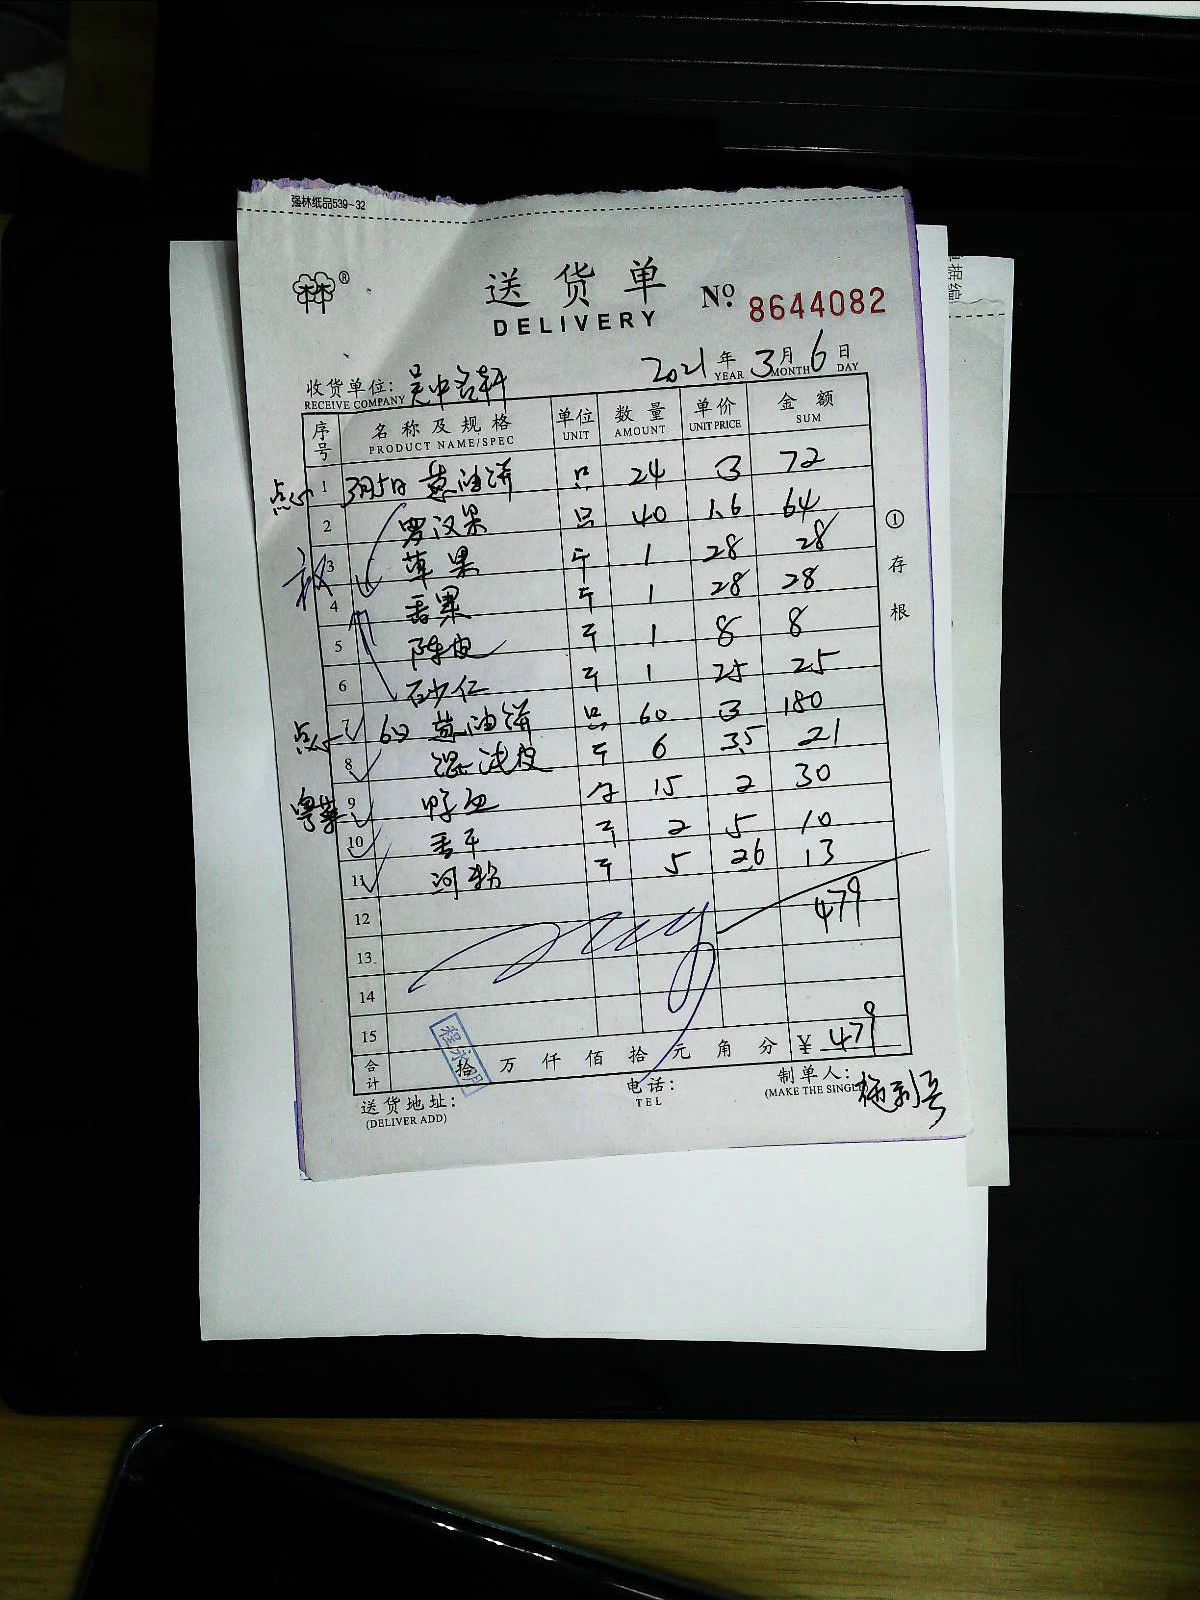 强林纸品539-32
林林®
送货单
DELIVERY
№ 8644082
2021年 3月 6日
YEAR MONTH DAY
收货单位: 吴中名轩
RECEIVE COMPANY
序号 名称及规格 单位 数量 单价 金额
PRODUCT NAME/SPEC UNIT AMOUNT UNIT PRICE SUM
点心 1 3月5日 葱油饼 只 24 3 72
2 罗汉果 只 40 1.6 64
3 草果 斤 1 28 28
4 香果 斤 1 28 28
5 陈皮 斤 1 8 8
6 石少仁 斤 1 25 25
点心 7 6日 葱油饼 只 60 3 180
8 混沌皮 斤 6 3.5 21
粤菜 9 鸭血 15 2 30
10 香干 斤 2 5 10
11 河粉 斤 5 2.6 13
12 479
13
14
15
合计 拾 万 仟 佰 拾 元 角 分 ¥ 479
程永明
送货地址: 电话: 制单人:
(DELIVER ADD) TEL (MAKE THE SINGLE)
① 存根